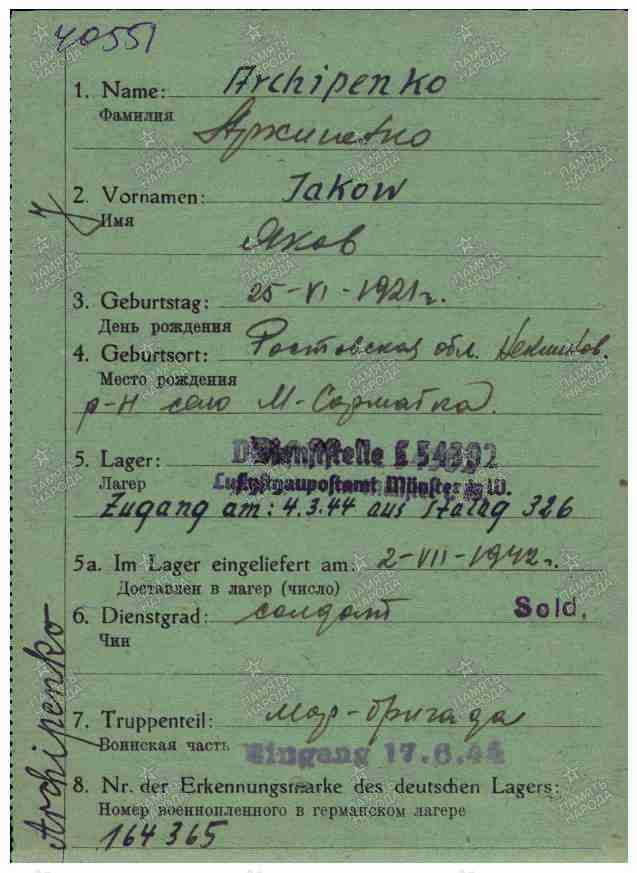 40551
1. Name: Archipenko
Фамилия
Архипенко
2. Vornamen: Jakow
Имя
Яков
3. Geburtstag: 25-VI-1921г.
День рождения
4. Geburtsort: Ростовская обл.
Место рождения
р-н село М-Сарматка
5. Lager: Dienststelle L 54302
Лагер Luftgaupostamt Münster i. W.
Zugang am: 4.3.44 aus Stalag 326
5a. Im Lager eingeliefert am: 2-VII-1942г.
Доставлен в лагер (число)
6. Dienstgrad: солдат Sold.
Чин
7. Truppenteil: мор-бригада
Воинская часть Eingang 17.6.44
8. Nr. der Erkennungsmarke des deutschen Lagers:
Номер военнопленного в германском лагере
164365
Archipenko
ПАМЯТЬ НАРОДА